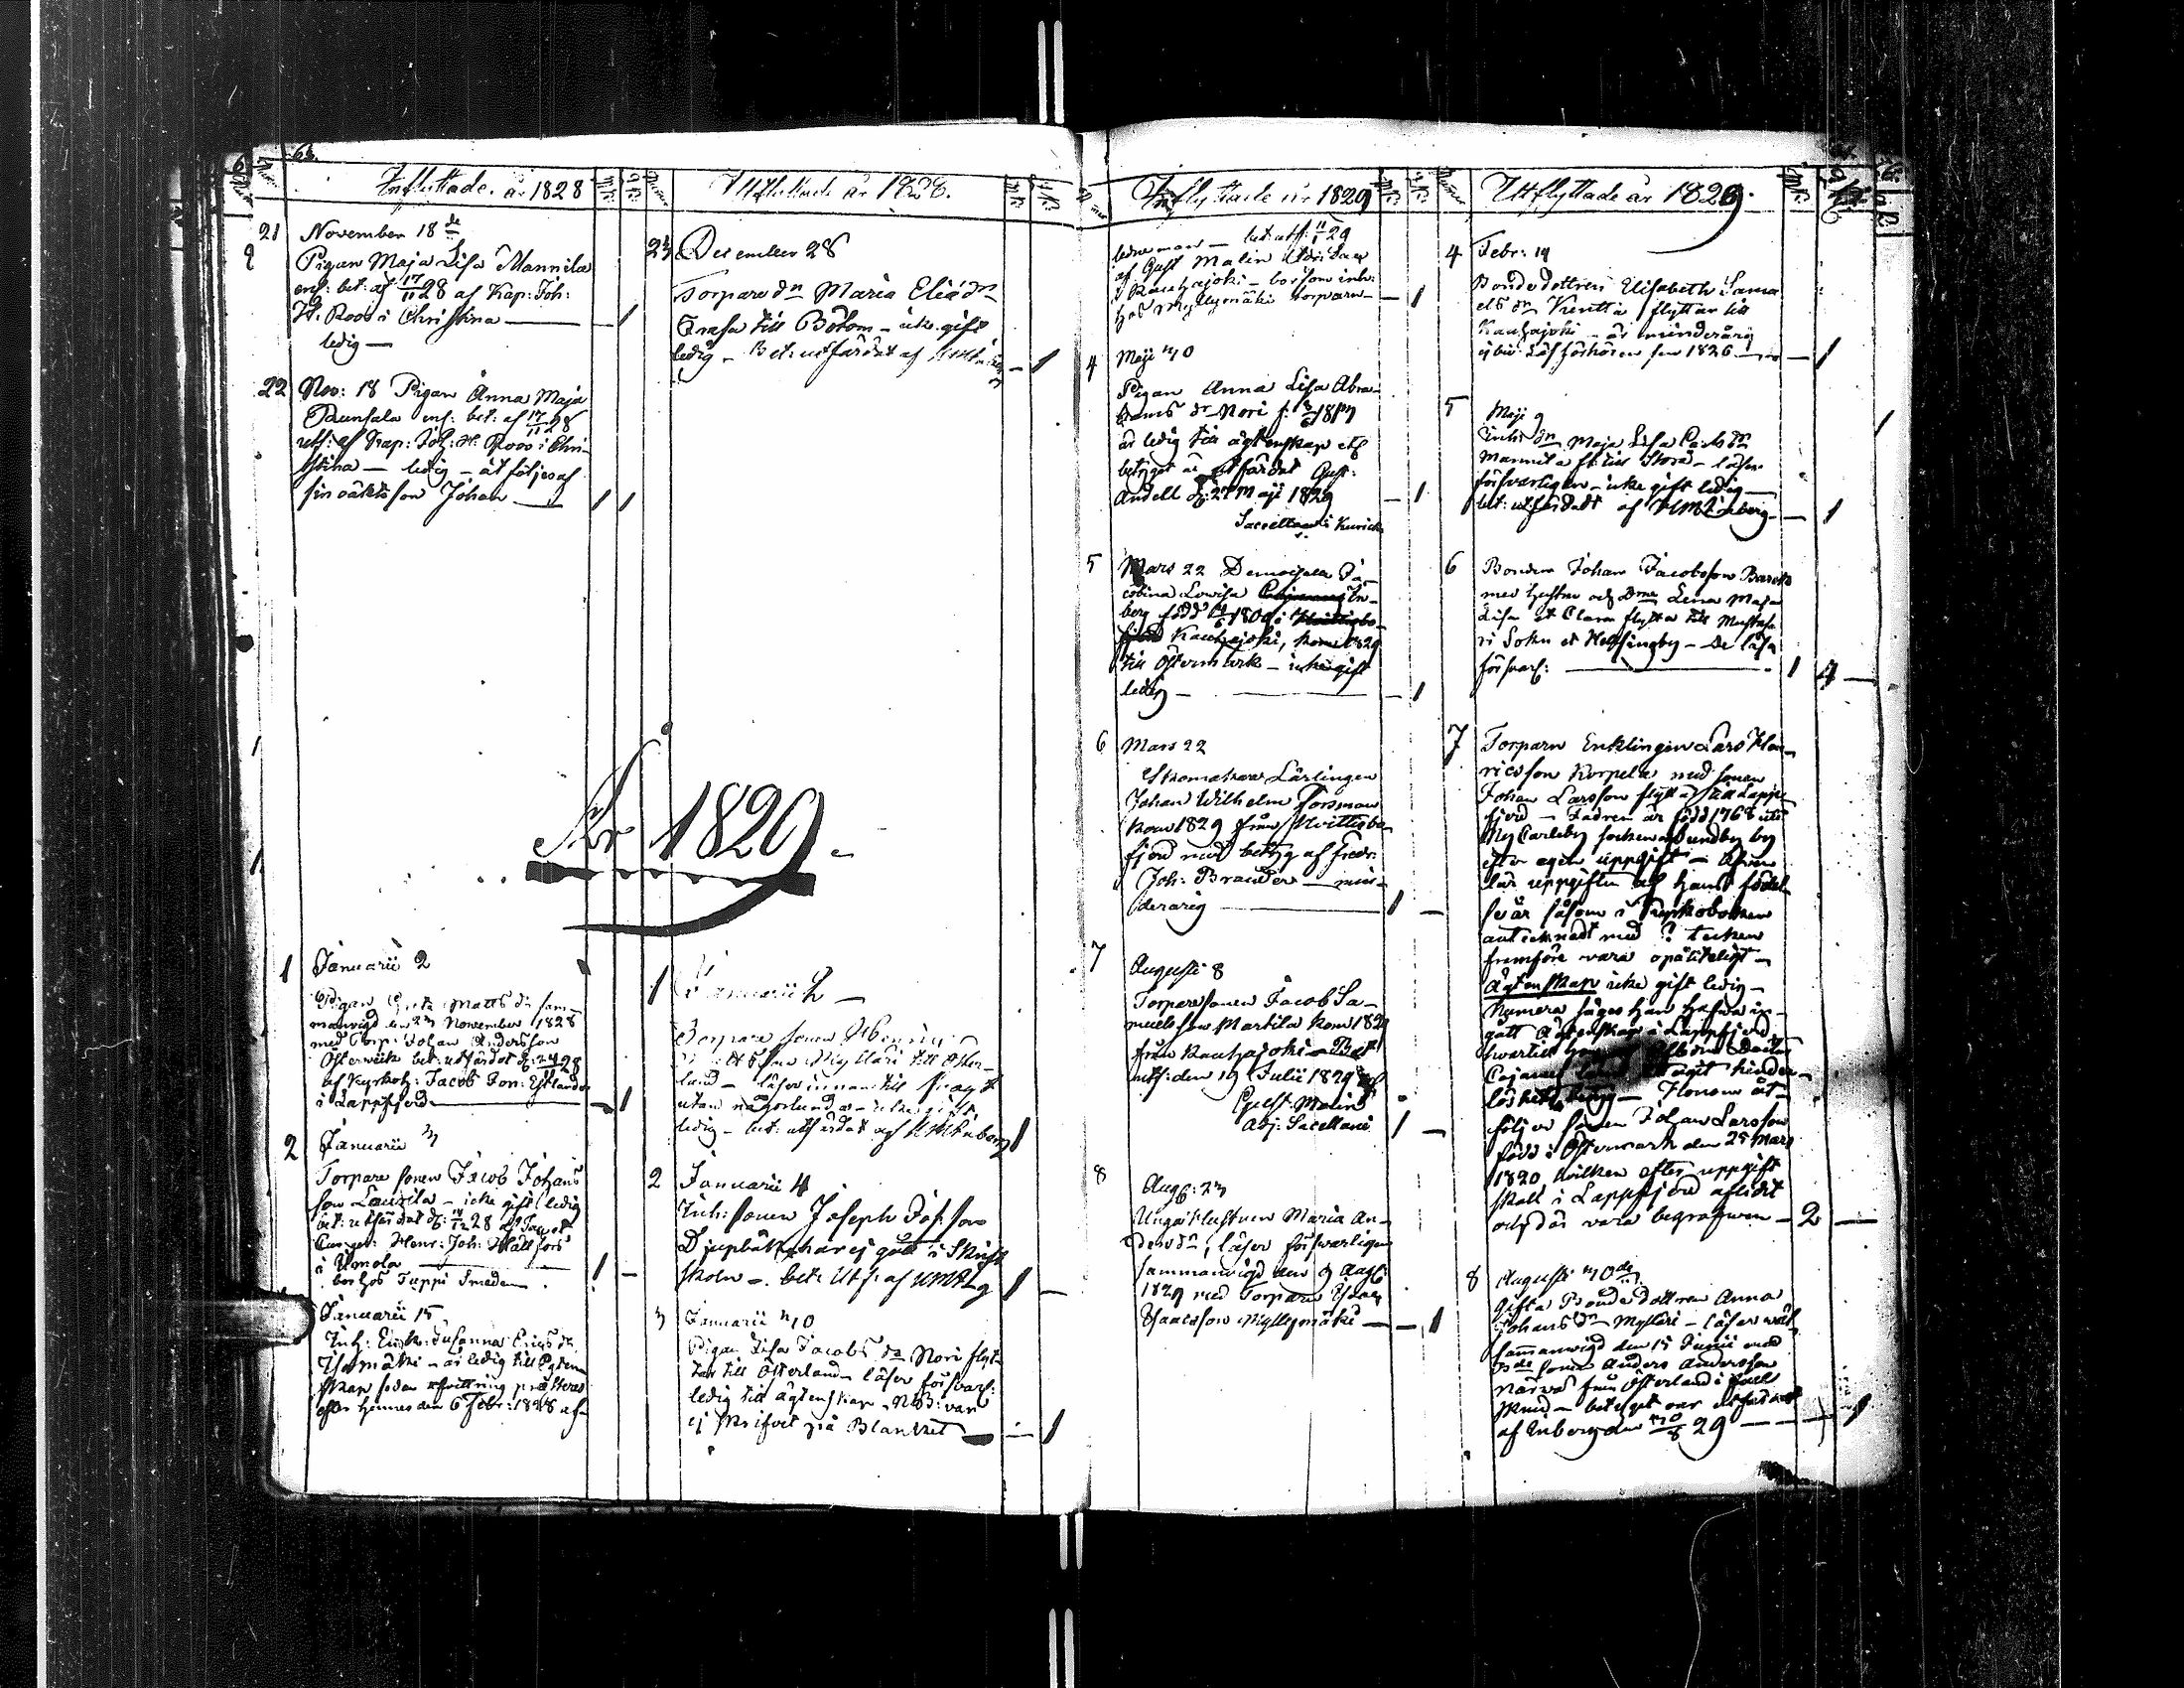 63.
Inflyttade år 1828
21 November 18de
Pigan Maja Lisa Mannila
enl: bet: af 17/11 28 af Kap: Joh:
H. Roos i Christina — 1
ledig —
22 Nov: 18 Pigan Anna Maja
enl: bet: af 17/11 28
utf: af Kap: Joh: H. Roos i Chri-
stina — ledig — åtföljes af
sin oäkta son Johan — 1 1
Utflyttade år 1828.
23 December 28
Torpare dn Maria Eliæ dn
till Bötom — icke gift
ledig — Bet: utfärdat af — 1
År 1829.
1 Januarii 2
Pigan Matts dr sam-
manvigd den 27 November 1828
med Torp: Johan Andersson
Österviik bet: utfärdat d: 24/12 28
af Kyrkoh: Jacob Jon: Estlander
i Lappfjerd — 1
2 Januarii 3
Torpare sonen Jacob Johans
son Laurila — icke gift ledig
bet: utfärdat d: 28
Henr: Joh: Hällfors
i Umola 1 —
bor hos Tuppi Smeden.
Januarii 15
Inh: Enk: Susanna Erics dr
är ledig till Ägten
skap sedan afvittring præsteras
efter hennes den 6 Febr: 1828 af-
1 Januarii 2 —
Torpare sonen Henric
Mylläri till Öster-
land — läser innantill svagt
utan någorlunda — icke gift
ledig — bet: utfärdat af UMEnberg 1
2 Januarii 4
Inh: sonen Joseph Jos:son
Djupbäk har ej gått i Skrift
skolan — bet: Utf: af UMEbg 1 —
3 Januarii 30
Pigan Lisa Jacobs dn Nori flyt-
tar till Österland — läser försvarl:
ledig till ägtenskap — NB: var
ej skrifvet på Blankett — 1
Inflyttade år 1829
ledne man — bet: utf: 29
af Gust Malin
i Kauhajoki — bor som inh:
hos Myllymäki torparn — 1
4 Maji 30
Pigan Anna Lisa Abra-
hams dr Nori f: 1813
är ledig till ägtenskap etc
betyget är utfärdat Gust:
Andell d: 27 Maji 1829 — 1
Sacellan i Kurick
5 Mars 22 Demoiselle Ja-
cobina Lovisa En-
berg född 180 i
Kauhajoki, kom 1829
till Östermark — icke gift
ledig — 1
6 Mars 22
Skomakare Lärlingen
Johan Wilhelm Forsman
kom 1829 från Hvittisbo-
fjerd med betyg af Fredr:
Joh: Brander — min-
derårig 1 —
7 Augusti 8
Torparesonen Jacob Sa-
muelsson Martila kom 1829
från Kauhajoki — Bet
utf: den 19 Julii 1829 af
Gust: Malin
Adj: Sacellani 1 —
8 Aug: 23
Unga Hustrun Maria An-
ders dr, läser försvarligen
sammanvigd den 9 Aug:
1829 med Torparn Isaac
Isaacsson Myllymäki — 1
Utflyttade år 1829.
4 Febr: 19
Bondedottren Elisabeth Samu
els dn Kentta flyttar till
Kauhajoki — är minderårig
ej bivist läsförhören sen 1826 — 1
5 Maji 9
Inhs dn Maja Lisa Carls dn
Mannila fl: till Storå — läser
försvarligen — icke gift ledig —
bet: utfärdadt af UMEnberg — 1
6 Bonden Johan Jacobsson
med hustru och Dttrne Lena Maja
Lisa et Clara flytta till Mustasa-
ri Sokn et Helsingby — De läsa
försvarl: 1 4
7 Torparn Enklingen Lars Hen-
ricsson Korpela med sonen
Johan Larsson flytta till Lapp-
fjerd — Fadren är född 1768 uti
Ny Carleby socken Sundby by
efter egen uppgift —
lär uppgiften af hans födel-
se år såsom i Kyrkoboken
antecknadt med ? tecken
framföre vara opåliteligt —
Ägtenskap icke gift ledig —
Numera säges han hafva in-
gått ägtenskap i Lappfjerd
Cajanus hinder-
löshets betyg — Honom åt-
följer sonen Johan Larsson
född i Östermark den 25 Mars
1820, hvilken efter uppgift
skall i Lappfjerd aflidit
och där vara begrafven — 2 —
8 Augusti 30de
Gifta Bondedottren Anna
Johans dn Mylläri — läser väl
sammanvigd den 15 Junii med
Bde sonen Anders Andersson
Närvä från Österland i
— betyget var utfärdat
af Enberg den 30/8 29 — 1